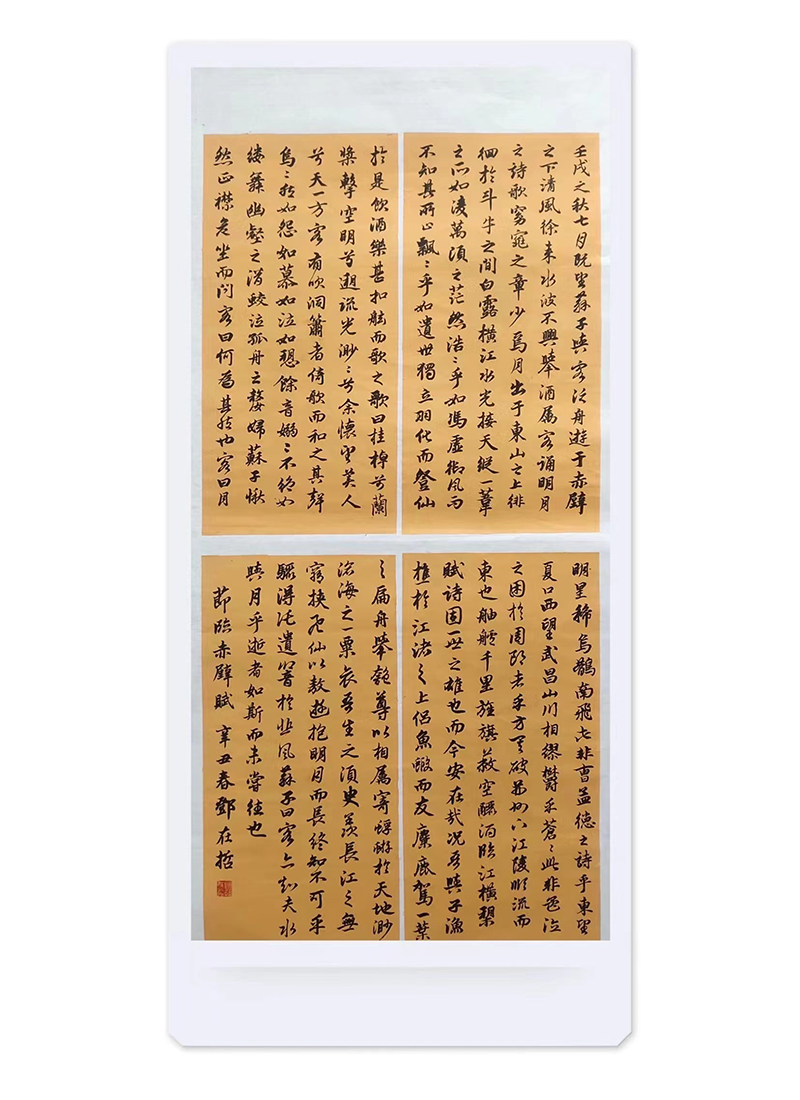 壬戌之秋七月既望蘇子與客泛舟遊于赤壁
之下清風徐来水波不興舉酒属客誦明月
之詩歌窈窕之章少焉月出于東山之上徘
徊於斗牛之間白露横江水光接天縱一葦
之所如凌萬頃之茫然浩〻乎如馮虚御風而
不知其所止飄〻乎如遺世獨立羽化而登仙
於是飲酒樂甚扣舷而歌之歌曰桂棹兮蘭
槳擊空明兮遡流光渺〻兮余懷望美人
兮天一方客有吹洞簫者倚歌而和之其聲
烏〻然如怨如慕如泣如愬餘音嫋〻不絶如
缕舞幽壑之潜蛟泣孤舟之嫠婦蘇子愀
然正襟危坐而问客曰何為其然也客曰月
明星稀烏鵲南飛此非曹孟德之詩乎東望
夏口西望武昌山川相繆鬱乎蒼〻此非
之困於周郎者乎方其破荆州下江陵順流而
東也舳艫千里旌旗蔽空釃酒臨江横槊
賦詩固一世之雄也而今安在哉况吾與子漁
樵於江渚之上侣魚蝦而友麋鹿駕一葉
之扁舟舉匏尊以相属寄蜉蝣於天地渺
滄海之一粟哀吾生之須臾羡長江之無
窮挟飛仙以敖遊抱明月而長終知不可乎
驟得託遺響於悲風蘇子曰客亦知夫水
與月乎逝者如斯而未嘗往也
節臨赤壁賦 辛丑春鄧在哲